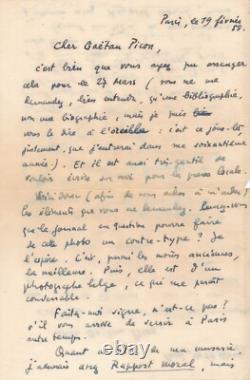 Paris, le 19 février
59.
Cher Gaëtan Picon,
c'est bien que vous ayez pu arranger
cela pour le 27 mars (vous ne me
demandez, bien entendu, qu'une bibliographie,
non une biographie, mais je puis bien
vous le dire à l'oreille : c'est ce jour-là
justement, que j'entrerai dans ma soixantième
année). Et il est aussi très gentil de
vouloir écrire
Voici donc (afin de vous aider à m'aider)
les éléments que vous me demandez.
que le journal en question pourra faire
de cette photo un contre-type ? Je
l'espère. C'est, parmi les moins anciennes,
la meilleure. Puis, elle est d'un
photographe belge, ce qui me paraît
convenable.
Faites-moi signe, n'est-ce pas ?
s'il vous arrive de venir à Paris
entre temps.
Quant à de ma causerie
j'aimerais assez Rapport moral, mais